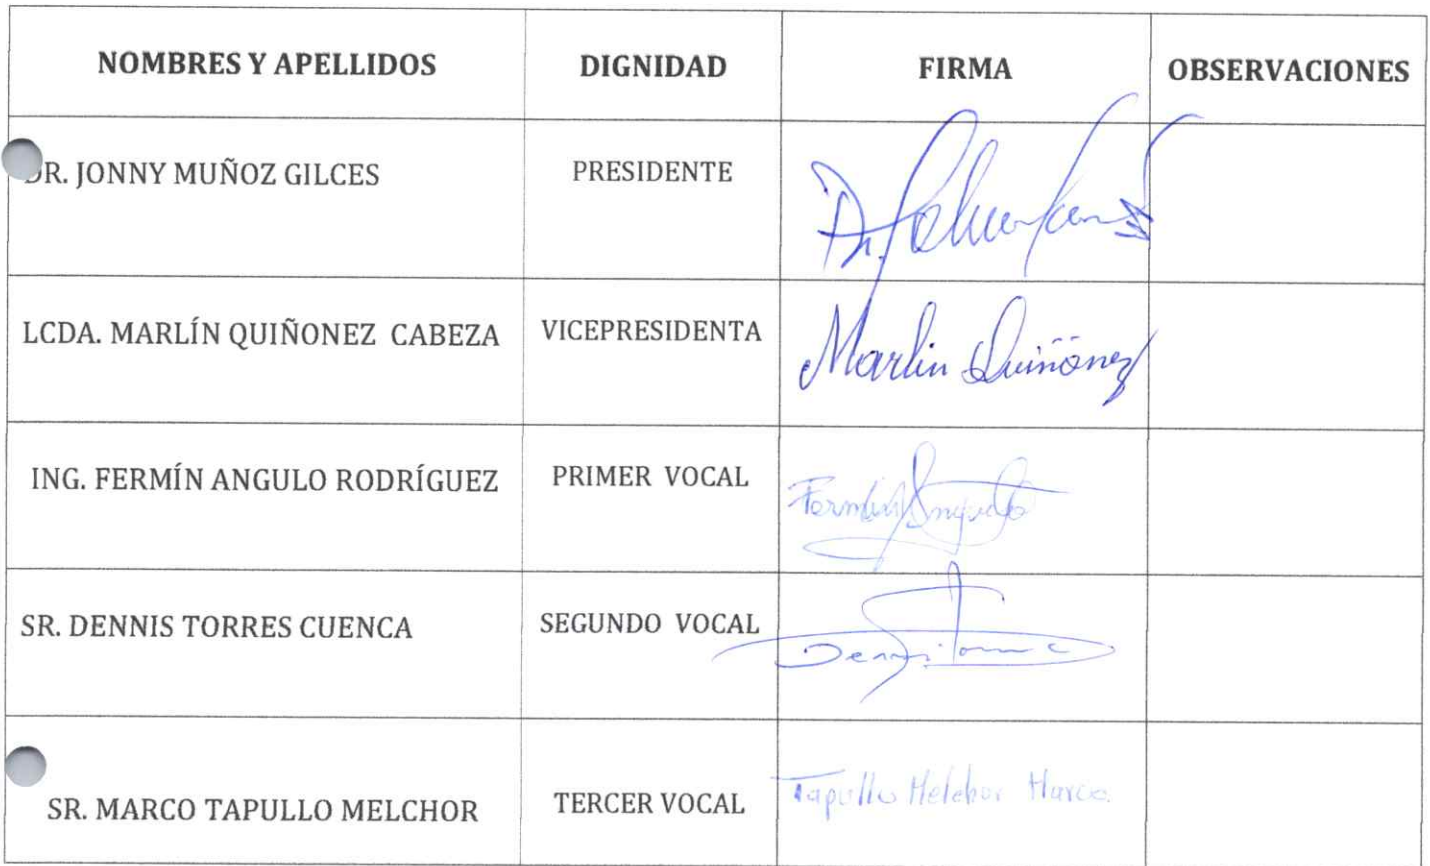 NOMBRES Y APELLIDOS DIGNIDAD FIRMA OBSERVACIONES
DR. JONNY MUÑOZ GILCES PRESIDENTE Dr.
LCDA. MARLÍN QUIÑONEZ CABEZA VICEPRESIDENTA Marlin Quiñónez
ING. FERMÍN ANGULO RODRÍGUEZ PRIMER VOCAL Fermín Angulo
SR. DENNIS TORRES CUENCA SEGUNDO VOCAL Dennis Torres C
SR. MARCO TAPULLO MELCHOR TERCER VOCAL Tapullo Melchor Marco.